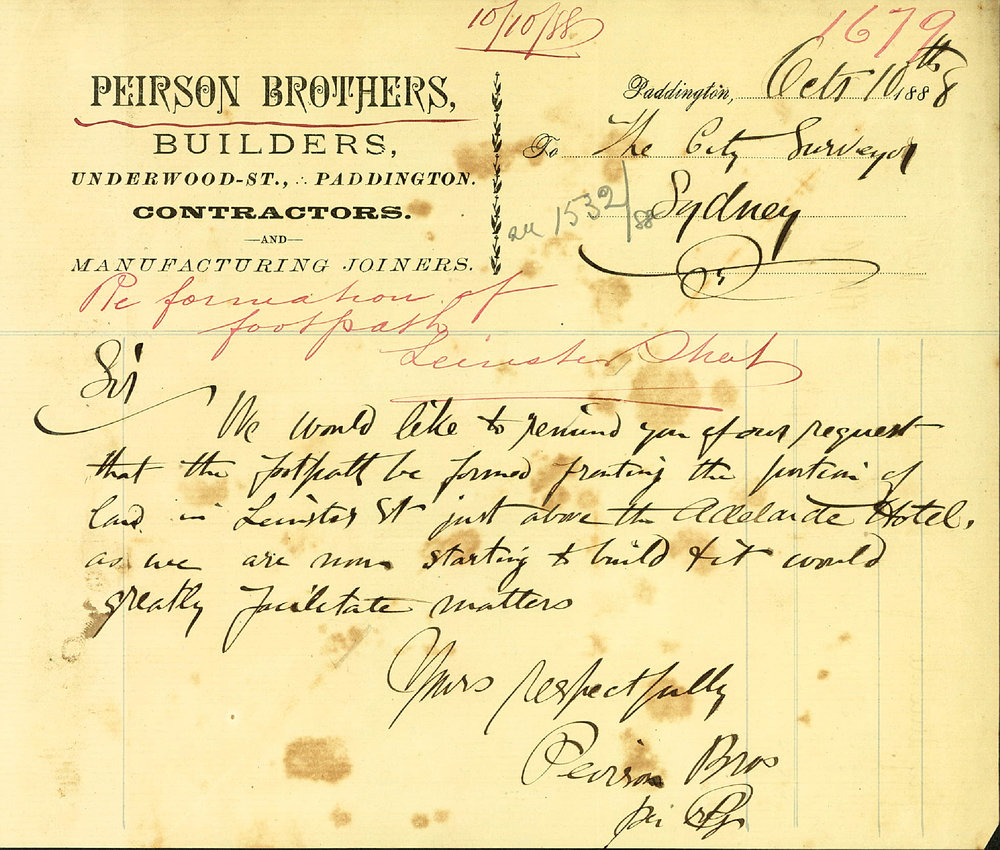 10/10/88
1679
PEIRSON BROTHERS,
BUILDERS,
UNDERWOOD-ST., PADDINGTON.
CONTRACTORS.
—AND—
MANUFACTURING JOINERS.
Paddington, Octr 10th 1888
To The City Surveyor
Sydney
1532/88
Re formation of
footpath
Leinster Street
Sir
We would like to remind you of our request
that the footpath be formed fronting the portion of
land in Leinster St just above the Adelaide Hotel,
as we are now starting to build & it would
greatly facilitate matters
Yours respectfully
Peirson Bros
per